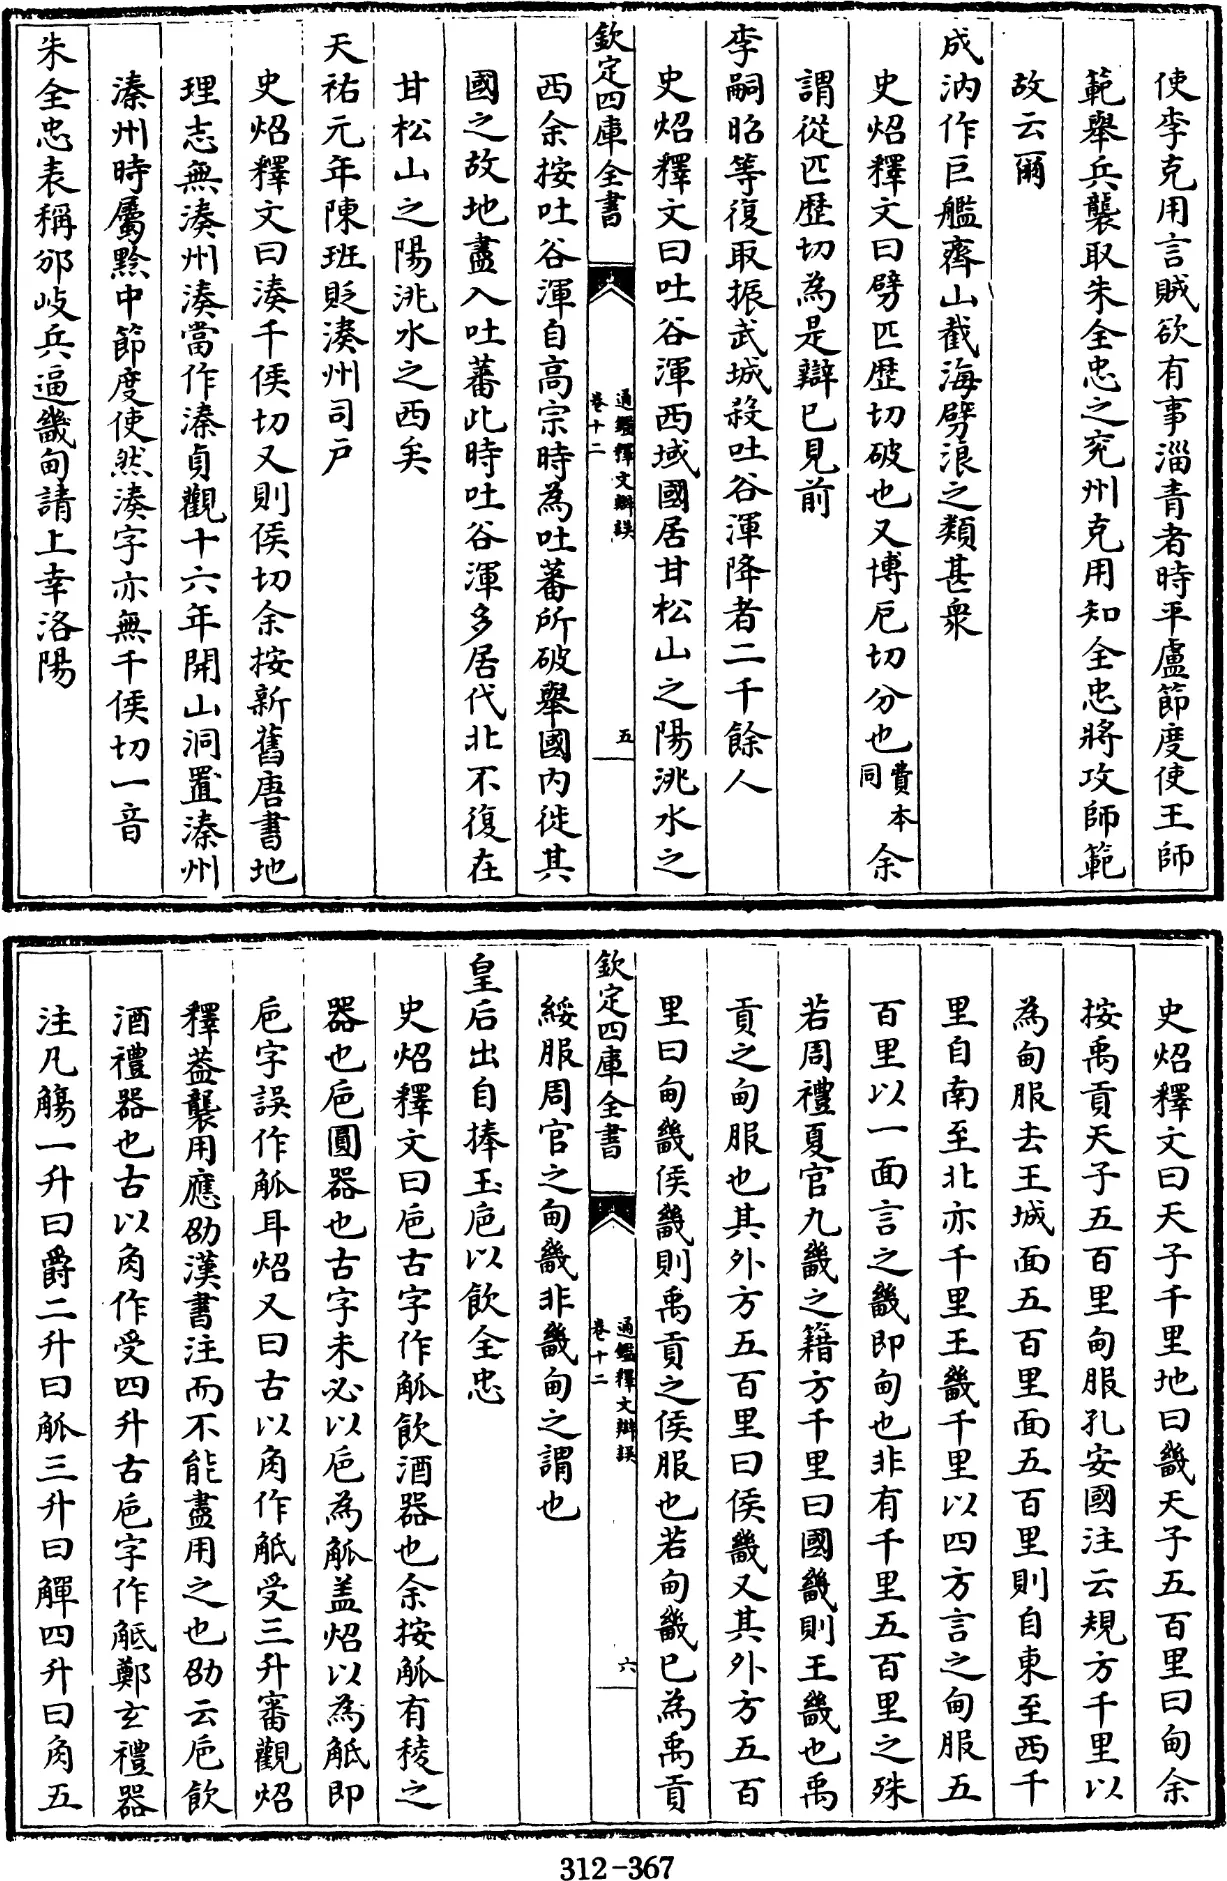 使李克用言賊欲有事淄青者時平盧節度使王師
範舉兵襲取朱全忠之兖州克用知全忠將攻師範
故云爾
成汭作巨艦齊山截海劈浪之類甚衆
史炤釋文曰劈匹歷切破也又博厄切分也費本同余
謂從匹歷切為是辯已見前
李嗣昭等復取振武城殺吐谷渾降者二千餘人
史炤釋文曰吐谷渾西域國居甘松山之陽洮水之
欽定四庫全書
通鑑釋文辯誤
卷十二
五
西余按吐谷渾自高宗時為吐蕃所破舉國内徙其
國之故地盡入吐蕃此時吐谷渾多居代北不復在
甘松山之陽洮水之西矣
天祐元年陳班貶湊州司户
史炤釋文曰湊千侯切又則侯切余按新舊唐書地
理志無湊州湊當作溱貞觀十六年開山洞置溱州
溱州時屬黔中節度使然湊字亦無千侯切一音
朱全忠表稱邠岐兵逼畿甸請上幸洛陽
史炤釋文曰天子千里地曰畿天子五百里曰甸余
按禹貢天子五百里甸服孔安國注云規方千里以
為甸服去王城面五百里面五百里則自東至西千
里自南至北亦千里王畿千里以四方言之甸服五
百里以一面言之畿即甸也非有千里五百里之殊
若周禮夏官九畿之籍方千里曰國畿則王畿也禹
貢之甸服也其外方五百里曰侯畿又其外方五百
里曰甸畿侯畿則禹貢之侯服也若甸畿已為禹貢
欽定四庫全書
通鑑釋文辯誤
卷十二
六
綏服周官之甸畿非畿甸之謂也
皇后出自捧玉巵以飲全忠
史炤釋文曰巵古字作觚飲酒器也余按觚有稜之
器也巵圓器也古字未必以巵為觚盖炤以為觝即
巵字誤作觚耳炤又曰古以角作觝受三升審觀炤
釋葢襲用應劭漢書注而不能盡用之也劭云巵飲
酒禮器也古以角作受四升古巵字作觝鄭玄禮器
注凡觴一升曰爵二升曰觚三升曰觶四升曰角五
312-367